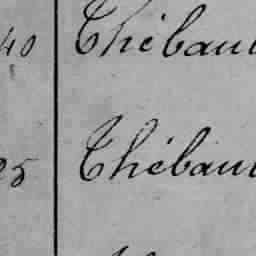 40 Thébaul
25 Thébaul